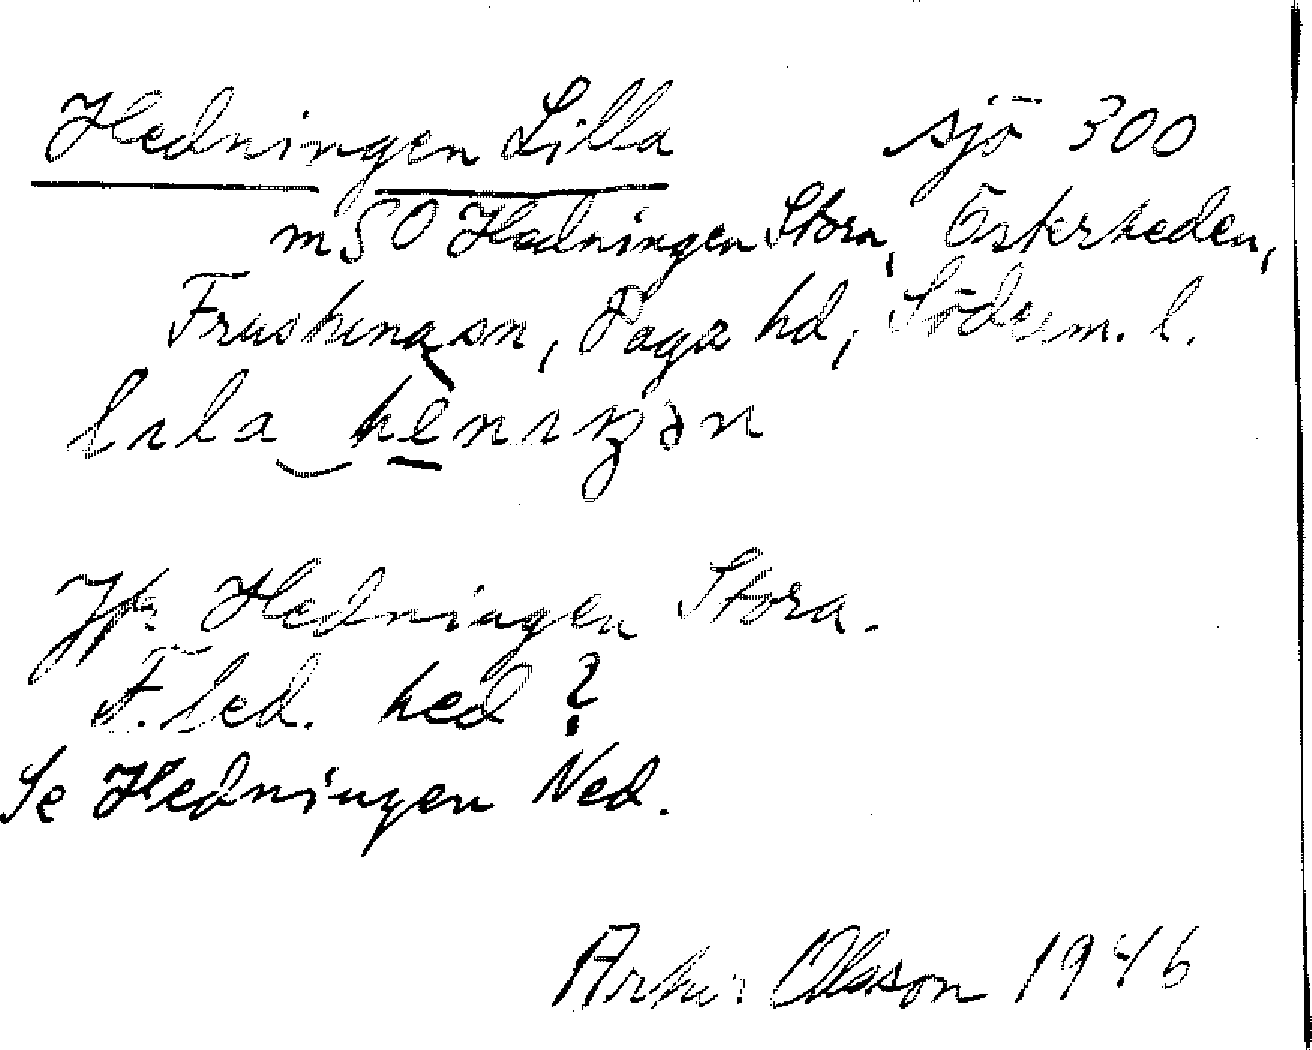 Hedningen Lilla sjö 300
m SO Hedningen Stora, Österheden,
Frustuna sn, Daga hd, Söderm. l.
lıla‿henıŋən
Jfr Hedningen Stora.
F. led. hed?
Se Hedningen Ned.
Arthur Olsson 1946